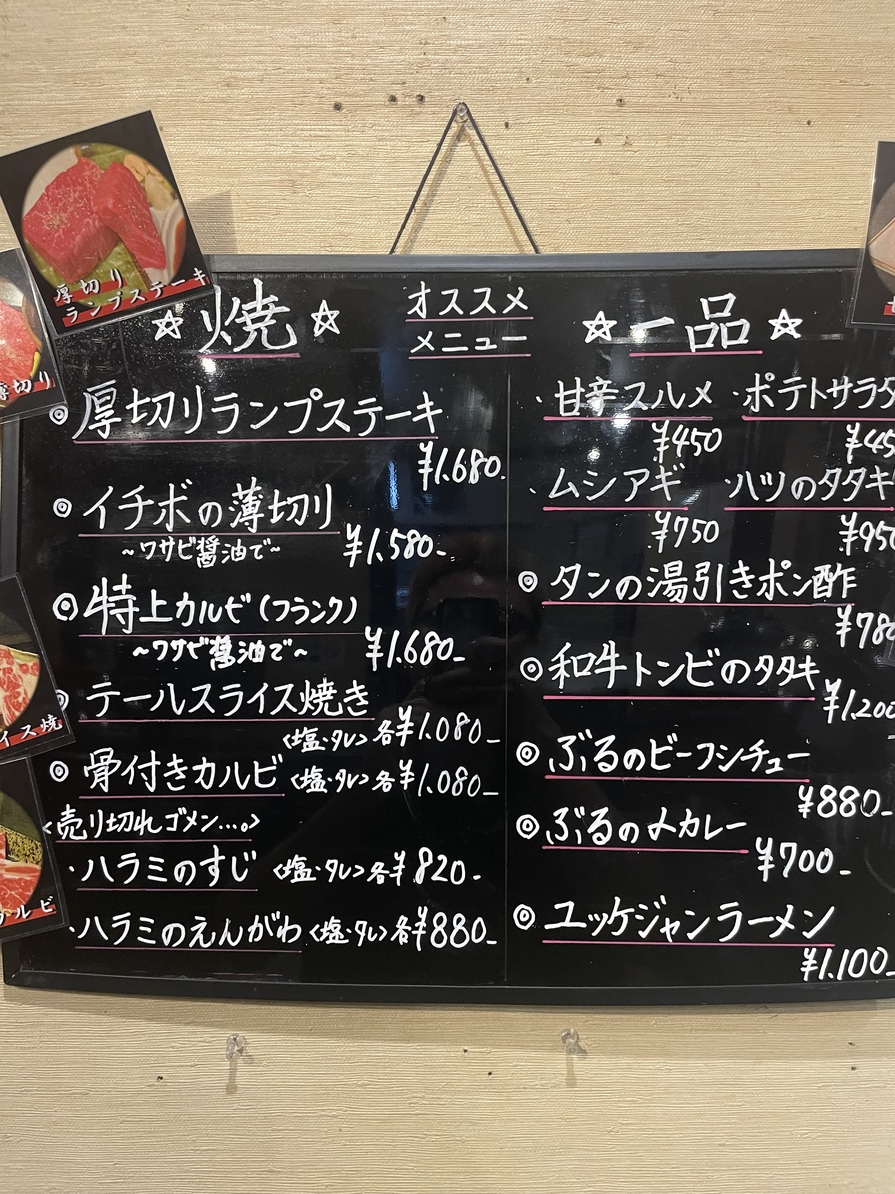 厚切り
ランプステーキ
厚切り
イス焼
ルビ
オススメ
メニュー
☆焼☆
◎厚切りランプステーキ
¥1.680.
◎イチボの薄切り
~ワサビ醤油で~ ¥1.580-
◎特上カルビ(フランク)
~ワサビ醤油で~ ¥1.680-
◎テールスライス焼き
<塩・タレ>各¥1.080-
◎骨付きカルビ <塩・タレ>各¥1.080-
<売り切れゴメン…。>
・ハラミのすじ <塩・タレ>各¥820-
・ハラミのえんがわ <塩・タレ>各¥880-
☆一品☆
・甘辛スルメ ・ポテトサラダ
¥450 ¥45
・ムシアギ ・ハツのタタキ
¥750 ¥950
◎タンの湯引きポン酢
¥780
◎和牛トンビのタタキ
¥1.200
◎ぶるのビーフシチュー
¥880-
◎ぶるの小カレー
¥700-
◎ユッケジャンラーメン
¥1.100-